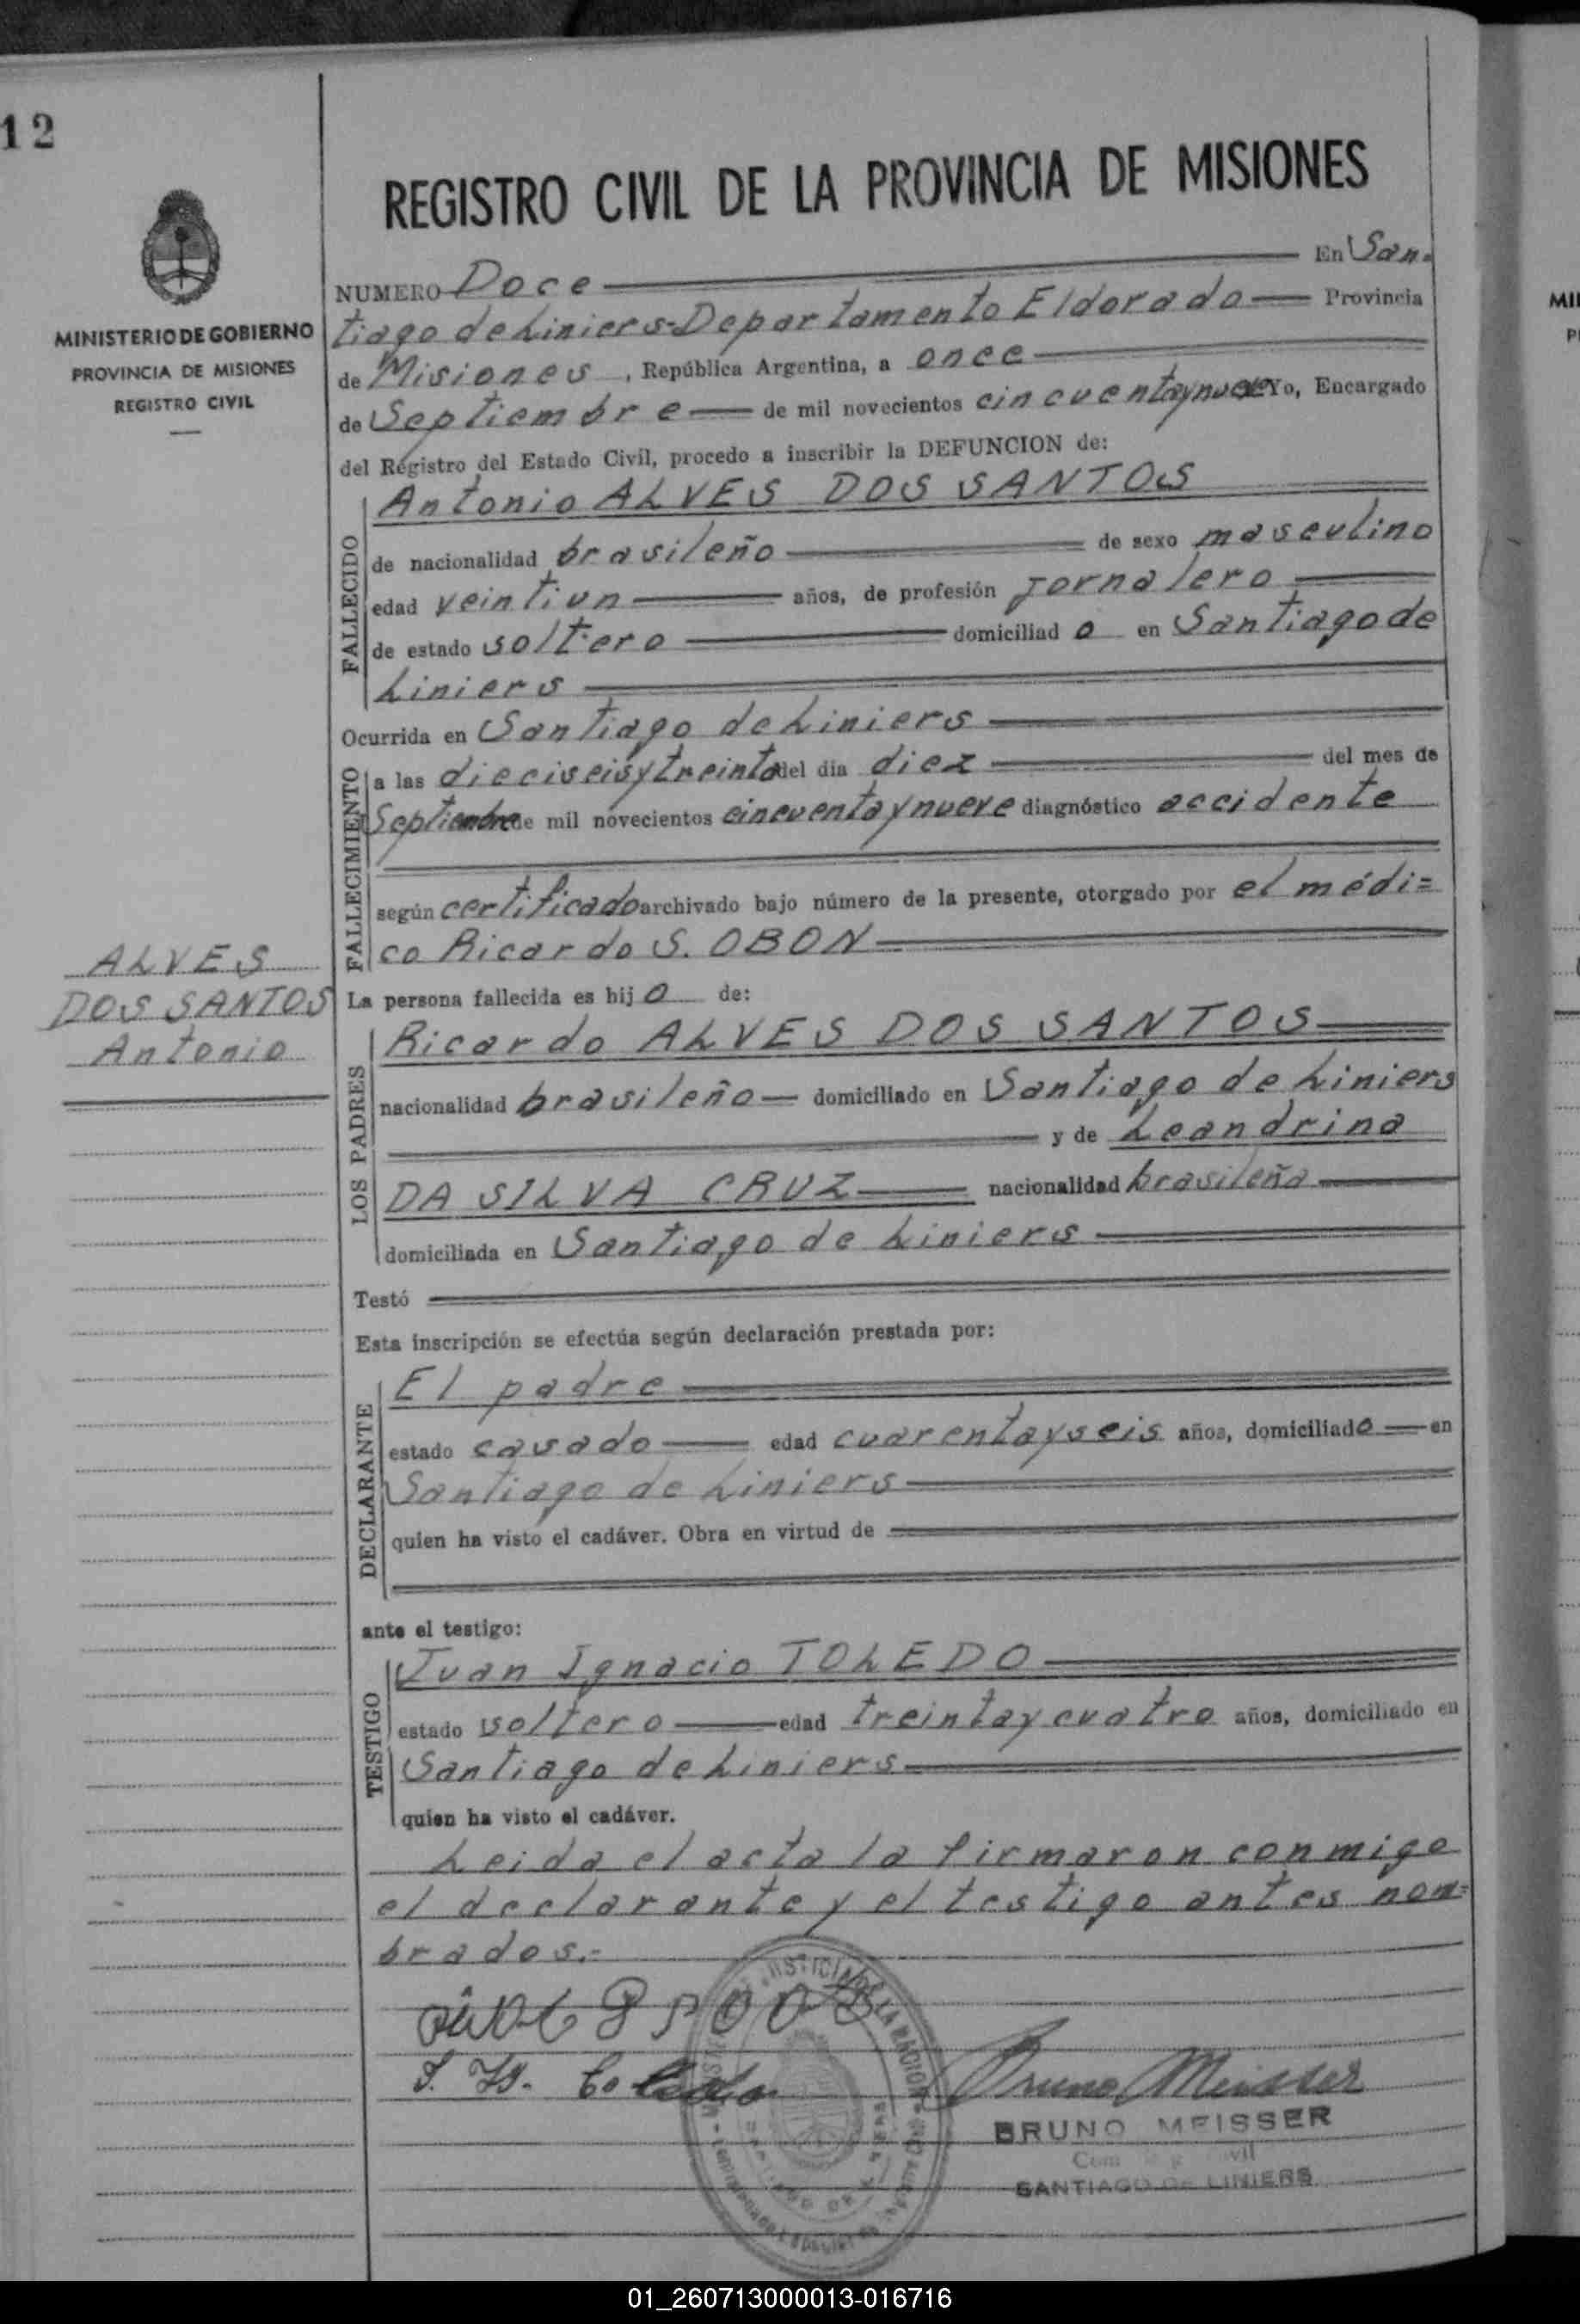 12
MINISTERIO DE GOBIERNO
PROVINCIA DE MISIONES
REGISTRO CIVIL
REGISTRO CIVIL DE LA PROVINCIA DE MISIONES
NUMERO Doce En San-
tiago de Liniers-Departamento Eldorado Provincia
de Misiones, República Argentina, a once
de Septiembre de mil novecientos cincuentaynueve Yo, Encargado
del Registro del Estado Civil, procedo a inscribir la DEFUNCION de:
FALLECIDO
Antonio ALVES DOS SANTOS
de nacionalidad brasileño de sexo masculino
edad veintiun años, de profesión jornalero
de estado soltero domiciliad o en Santiago de
Liniers
Ocurrida en Santiago de Liniers
FALLECIMIENTO
a las dieciseisytreinta del día diez del mes de
Septiembre de mil novecientos cincuentaynueve diagnóstico accidente
según certificado archivado bajo número de la presente, otorgado por el médi=
co Ricardo S. OBON
ALVES
DOS SANTOS
Antonio
La persona fallecida es hij o de:
LOS PADRES
Ricardo ALVES DOS SANTOS
nacionalidad brasileño domiciliado en Santiago de Liniers
y de Leandrina
DA SILVA CRUZ nacionalidad brasileña
domiciliada en Santiago de Liniers
Testó
Esta inscripción se efectúa según declaración prestada por:
DECLARANTE
El padre
estado casado edad cuarentayseis años, domiciliado en
Santiago de Liniers
quien ha visto el cadáver. Obra en virtud de
ante el testigo:
TESTIGO
Juan Ignacio TOLEDO
estado soltero edad treintaycuatro años, domiciliado en
Santiago de Liniers
quien ha visto el cadáver.
Leida el acta la firmaron conmigo
el declarante y el testigo antes nom=
brados.-
Bruno Meisser
BRUNO MEISSER
SANTIAGO DE LINIERS
01_260713000013-016716